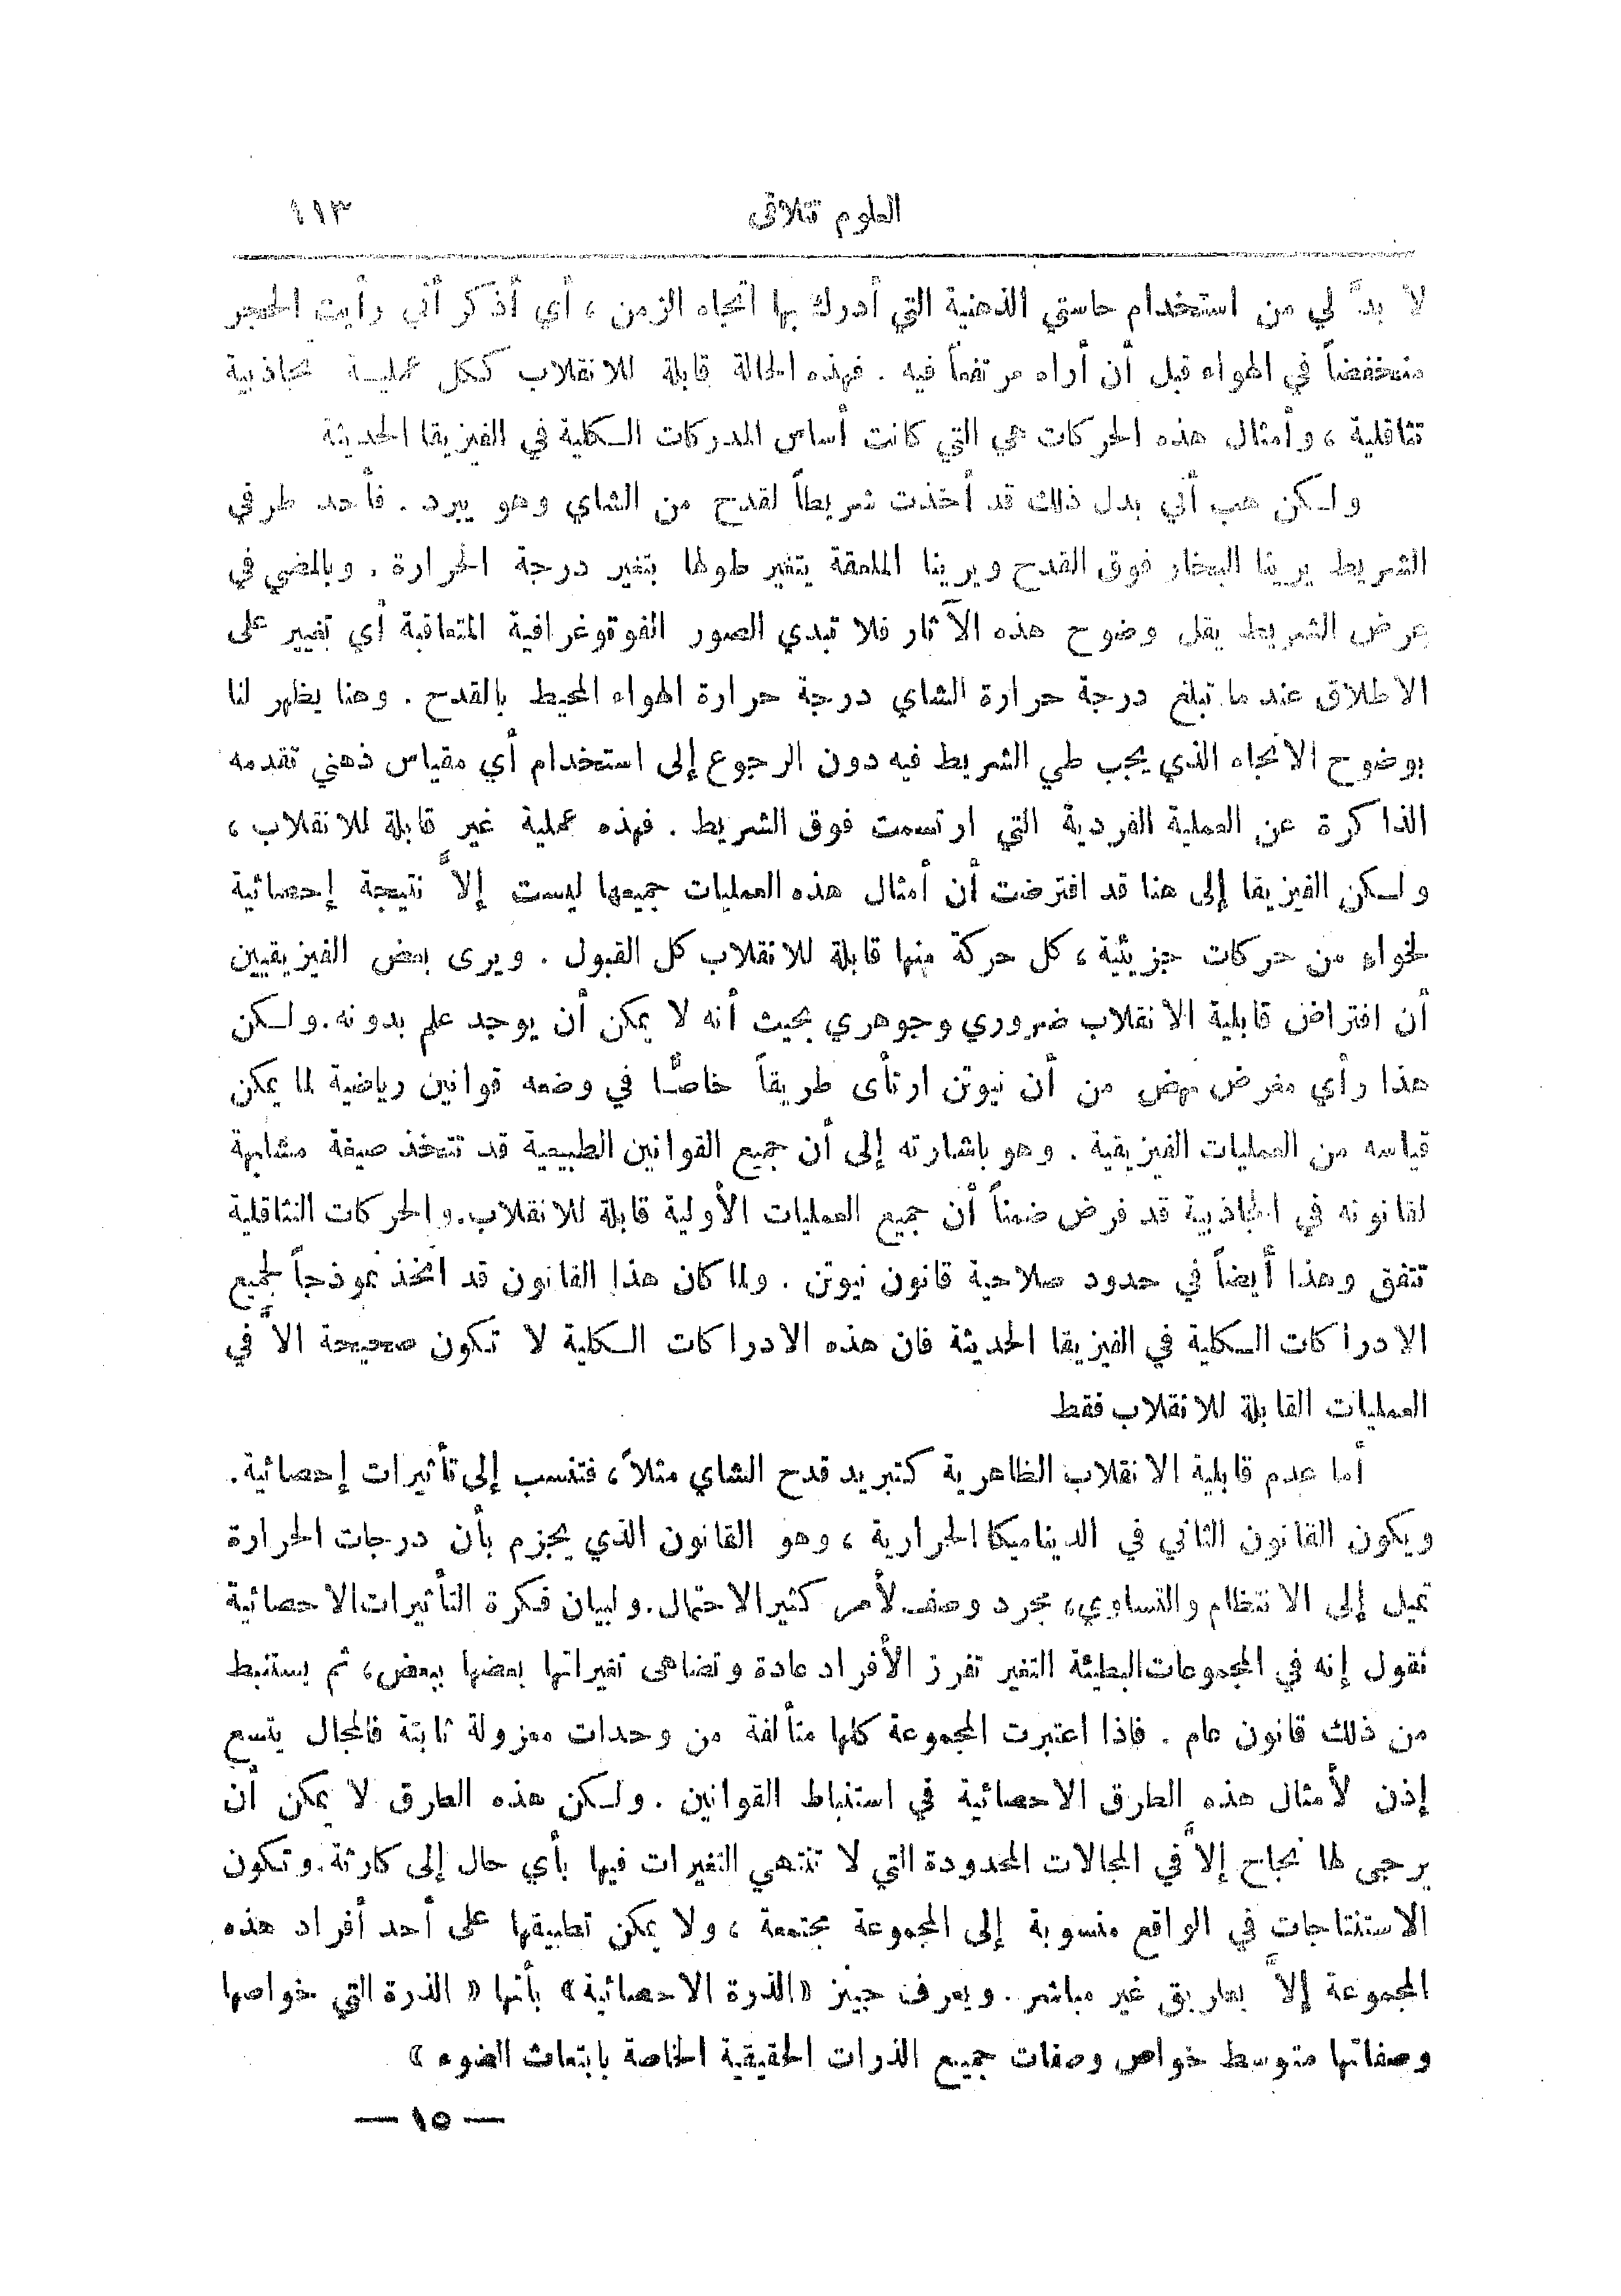 العلوم تتلاقى
١١٣
لا بدَّ لي من استخدام حاستي الذهنية التي أدرك بها اتجاه الزمن ، أي أذكر أني رأيت الحجر
منخفضاً في الهواء قبل أن أراه مرتفعاً فيه . فهذه الحالة قابلة للانقلاب ككل عملية تجاذبية
تثاقلية ، وأمثال هذه الحركات هي التي كانت أساس المدركات الكلية في الفيزيقا الحديثة
ولكن هب أني بدل ذلك قد أخذت شريطاً لقدح من الشاي وهو يبرد . فأحد طرفي
الشريط يرينا البخار فوق القدح ويرينا الملعقة يتغير طولها بتغير درجة الحرارة . وبالمضي في
عرض الشريط يقل وضوح هذه الآثار فلا تبدي الصور الفوتوغرافية المتعاقبة أي تغيير على
الاطلاق عند ما تبلغ درجة حرارة الشاي درجة حرارة الهواء المحيط بالقدح . وهنا يظهر لنا
بوضوح الاتجاه الذي يجب طي الشريط فيه دون الرجوع إلى استخدام أي مقياس ذهني تقدمه
الذاكرة عن العملية الفردية التي ارتسمت فوق الشريط . فهذه عملية غير قابلة للانقلاب ،
ولكن الفيزيقا إلى هنا قد افترضت أن أمثال هذه العمليات جميعها ليست إلاَّ نتيجة إحصائية
لخواء من حركات جزيئية ، كل حركة منها قابلة للانقلاب كل القبول . ويرى بعض الفيزيقيين
أن افتراض قابلية الانقلاب ضروري وجوهري بحيث أنه لا يمكن أن يوجد علم بدونه . ولكن
هذا رأي مغرض نهض من أن نيوتن ارتأى طريقاً خاصًّا في وضعه قوانين رياضية لما يمكن
قياسه من العمليات الفيزيقية . وهو باشارته إلى أن جميع القوانين الطبيعية قد تتخذ صيغة مشابهة
لقانونه في الجاذبية قد فرض ضمناً أن جميع العمليات الأولية قابلة للانقلاب . والحركات التثاقلية
تتفق وهذا أيضاً في حدود صلاحية قانون نيوتن . ولما كان هذا القانون قد اتخذ نموذجاً لجميع
الادراكات الكلية في الفيزيقا الحديثة فان هذه الادراكات الكلية لا تكون صحيحة الاَّ في
العمليات القابلة للانقلاب فقط
أما عدم قابلية الانقلاب الظاهرية كتبريد قدح الشاي مثلاً ، فتنسب إلى تأثيرات إحصائية .
ويكون القانون الثاني في الديناميكا الحرارية ، وهو القانون الذي يجزم بأن درجات الحرارة
تميل إلى الانتظام والتساوي ، مجرد وصف لأمر كثير الاحتمال . ولبيان فكرة التأثيرات الاحصائية
نقول إنه في المجموعات البطيئة التغير تفرز الأفراد عادة وتضاهى تغيراتها بعضها ببعض ، ثم يستنبط
من ذلك قانون عام . فاذا اعتبرت المجموعة كلها متألفة من وحدات معزولة ثابتة فالمجال يتسع
إذن لأمثال هذه الطرق الاحصائية في استنباط القوانين . ولكن هذه الطرق لا يمكن أن
يرجى لها نجاح إلاَّ في المجالات المحدودة التي لا تنتهي التغيرات فيها بأي حال إلى كارثة . وتكون
الاستنتاجات في الواقع منسوبة إلى المجموعة مجتمعة ، ولا يمكن تطبيقها على أحد أفراد هذه
المجموعة إلاَّ بطريق غير مباشر . ويعرف جينز « الذرة الاحصائية » بأنها « الذرة التي خواصها
وصفاتها متوسط خواص وصفات جميع الذرات الحقيقية الخاصة بابتعاث الضوء »
— ١٥ —